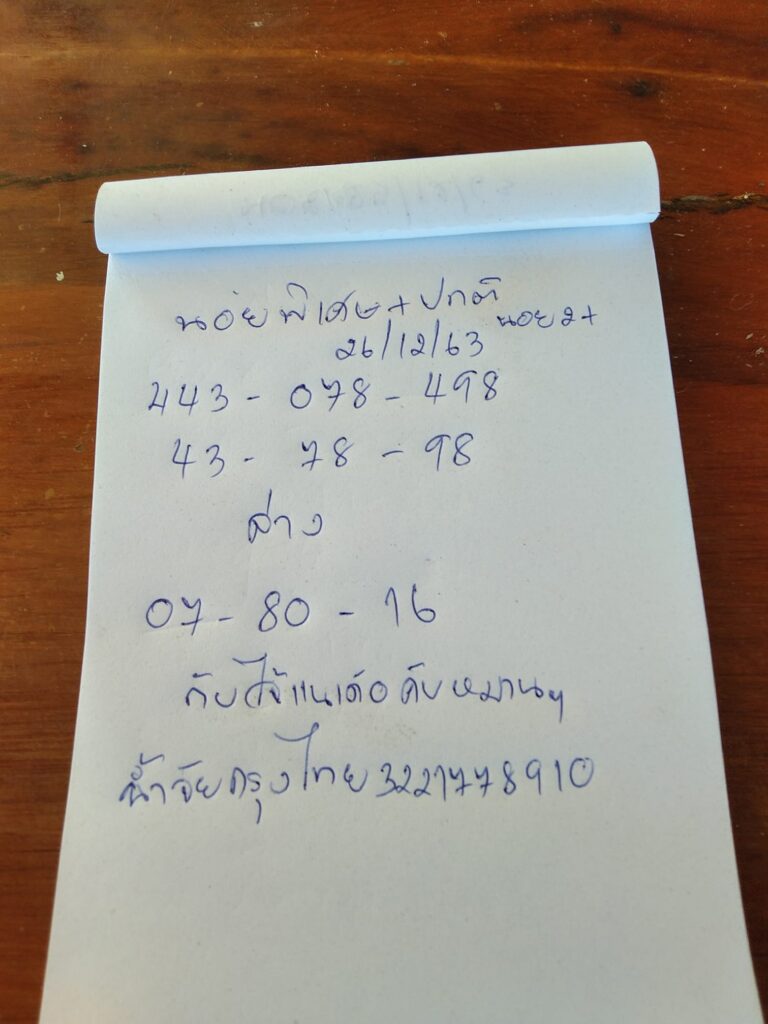 นอ่ยพิเศษ+ปกติ
นอย2+
26/12/63
443 - 078 - 498
43 - 78 - 98
ล่าง
07 - 80 - 16
กับไจ้แนเด้อ คับหมานๆ
น้ำจัยกรุงไทย 3221778910